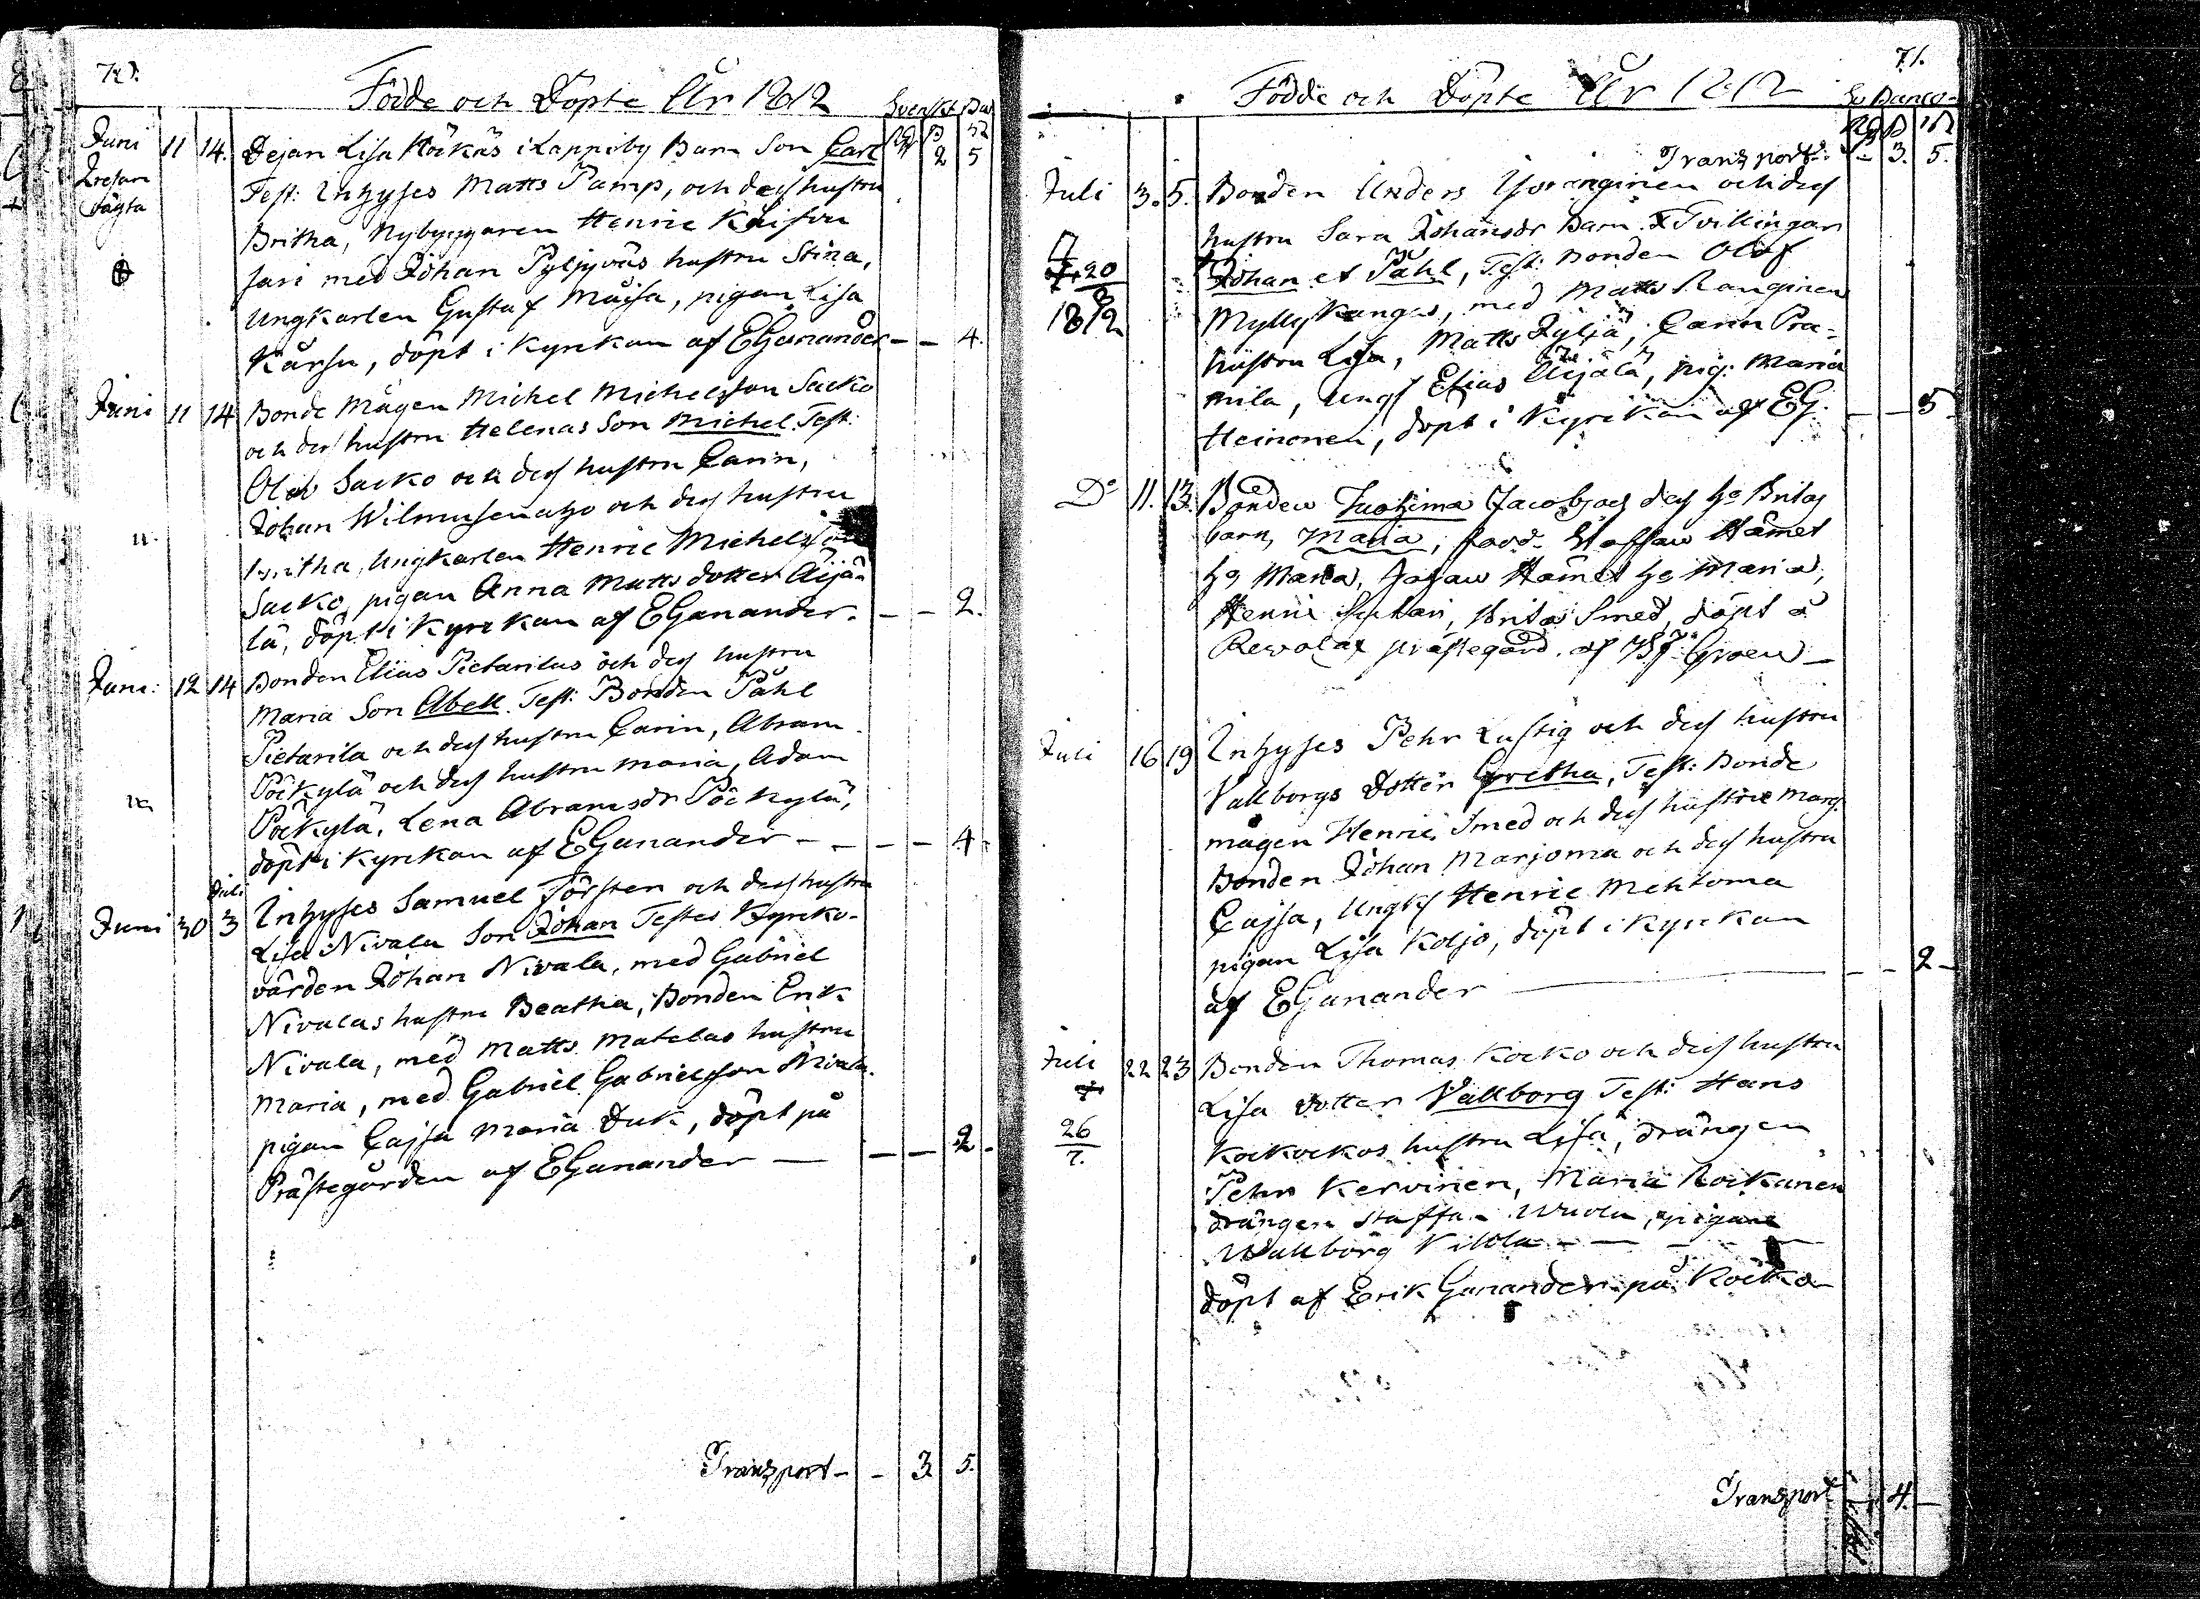 70.
Födde och Döpte År 1812
Svenskt Bco
Rd ß
Juni 11 14. Dejan Lisa Höikäs i Lappiby Barn Son Carl 2 5
Test: Inhyses Matts Pamp, och dess hustru
Britha, Nybyggaren Henric Kaison
Jari med Johan Pyljyväs hustru Stina,
Ungkarlen Gustaf Måisa, pigan Lisa
Karsu, döpt i Kyrkan af EGanander - - 4.
Juni 11 14 Bonde Mågen Michel Michelsson Sacko
och des hustru Helenas Son Michel. Test:
Olof Sacko och dess hustru Carin,
Johan Wilmusenaho och dess hustru
Britha, Ungkarlen Henric Michelsson
Sacko, pigan Anna Matts dotter Äijä-
lä, döpt i Kyrckan af EGanander. - - 2.
Juni: 12 14 Bonden Elias Pietarilas och dess hustru
Maria Son Abell. Test: Bonden Påhl
Pietarila och dess hustru Carin, Abram
Pöckylä och dess hustru Maria, Adam
Pöckylä, Lena Abramsdr Pöckylä,
döpt i Kyrckan af EGanander - - - - 4.
Juli
Juni 30 3 Inhyses Samuel Försten och dess hustru
Lisa i Nivala Son Johan Testes Kyrko-
värden Johan Nivala, med Gabriel
Nivalas hustru Beatha, Bonden Erik
Nivala, med Matts Matelas hustru
Maria, med Gabriel Gabrielsson Nivala.
pigan Cajsa Maria Duk, döpt på
Prästegården af EGanander — - - 2.
Transport - - 3 5.
71.
Födde och Döpte År 1812
Sv Banco
Rd ß
Transport: - 3. 5.
Juli 3. 5. Bonden Anders Isoranginen och dess
hustru Sara Johansdr Barn Tvillingar
20
Johan et Påhl, Test: Bonden Olof
8
1812
Myllykangas, med Matts Ranginen
hustru Lisa, Matts Jyljä, Carin Pra-
mila, Ungk Elias Äijälä, pig: Maria
Heinonen, döpt i Kyrckan af EG. - - 5.
Do 11. 13. Bonden Tuohima Jacobs och dess ho Britas
barn, Maria, fadd. Staffan Hämet
ho Maria, Johan Hämet ho Maria,
Henric Suhari, Brita Smed, döpt å
Revolax prästegård, af Groen —
Juli 16 19 Inhyses Pehr Lustig och dess hustru
Vallborgs Dotter Gretha, Test: Bonde
mågen Henric Smed och dess hustru Marg.
Bonden Johan Marjoma och dess hustru
Cajsa, Ungk Henric Mehtoma
pigan Lisa Koljo, döpt i Kyrckan
af EGanander — - - 2 -
Juli 22 23 Bonden Thomas Kocko och dess hustru
Lisa dotter Vallborg Test: Hans
26
7.
Kockockos hustru Lisa, drängen
Pehr Kervinen, Maria Rockanen
drängen Staffan Wuolu, pigan
Wallborg Kilola - - -
döpt af Erik Gananders på Kocko
Transport - 4. -